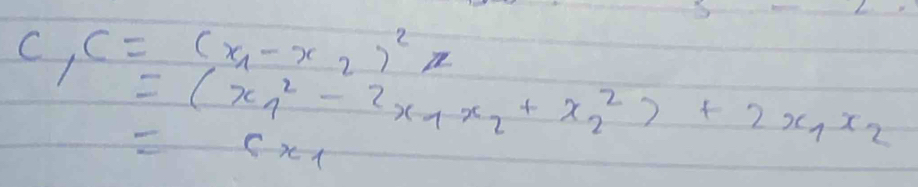 c, C = (x₁ - x₂)²
= (x₁² - 2x₁x₂ + x₂²) + 2x₁x₂
= cx₁